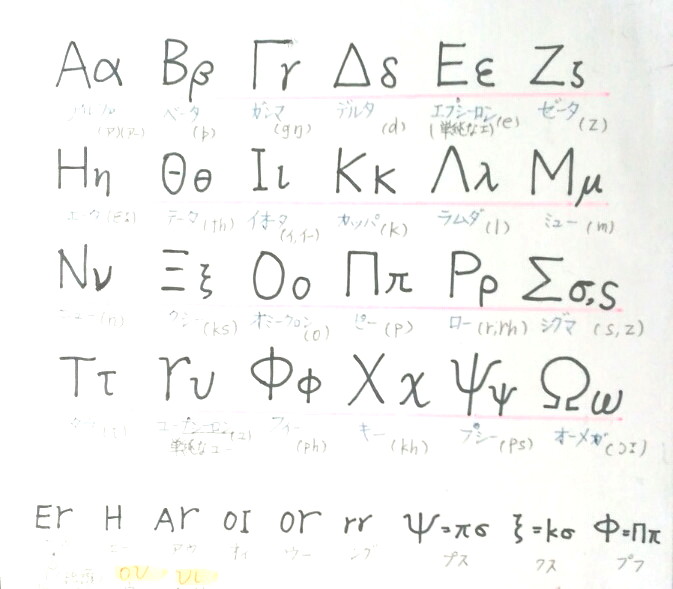 Αα Ββ Γγ Δδ Εε Ζζ
ベータ ガンマ デルタ エプシーロン ゼータ
(b) (gŋ) (d) (単純なエ) (e) (z)
Ηη Θθ Ιι Κκ Λλ Μμ
テータ (th) イオータ カッパ (k) ラムダ (l) ミュー (m)
(イ,イー)
Νν Ξξ Οο Ππ Ρρ Σσ,ς
(n) クシー (ks) オミークロン (o) ピー (p) ロー (r,rh) シグマ (s,z)
Ττ Υυ Φφ Χχ Ψψ Ωω
フィー (ph) キー (kh) プシー (ps) オーメガ
単純なユー
ΕΥ Η ΑΥ ΟΙ ΟΥ γγ Ψ=πσ ξ=κσ Φ=Ππ
アウ オイ ウー プス クス プフ